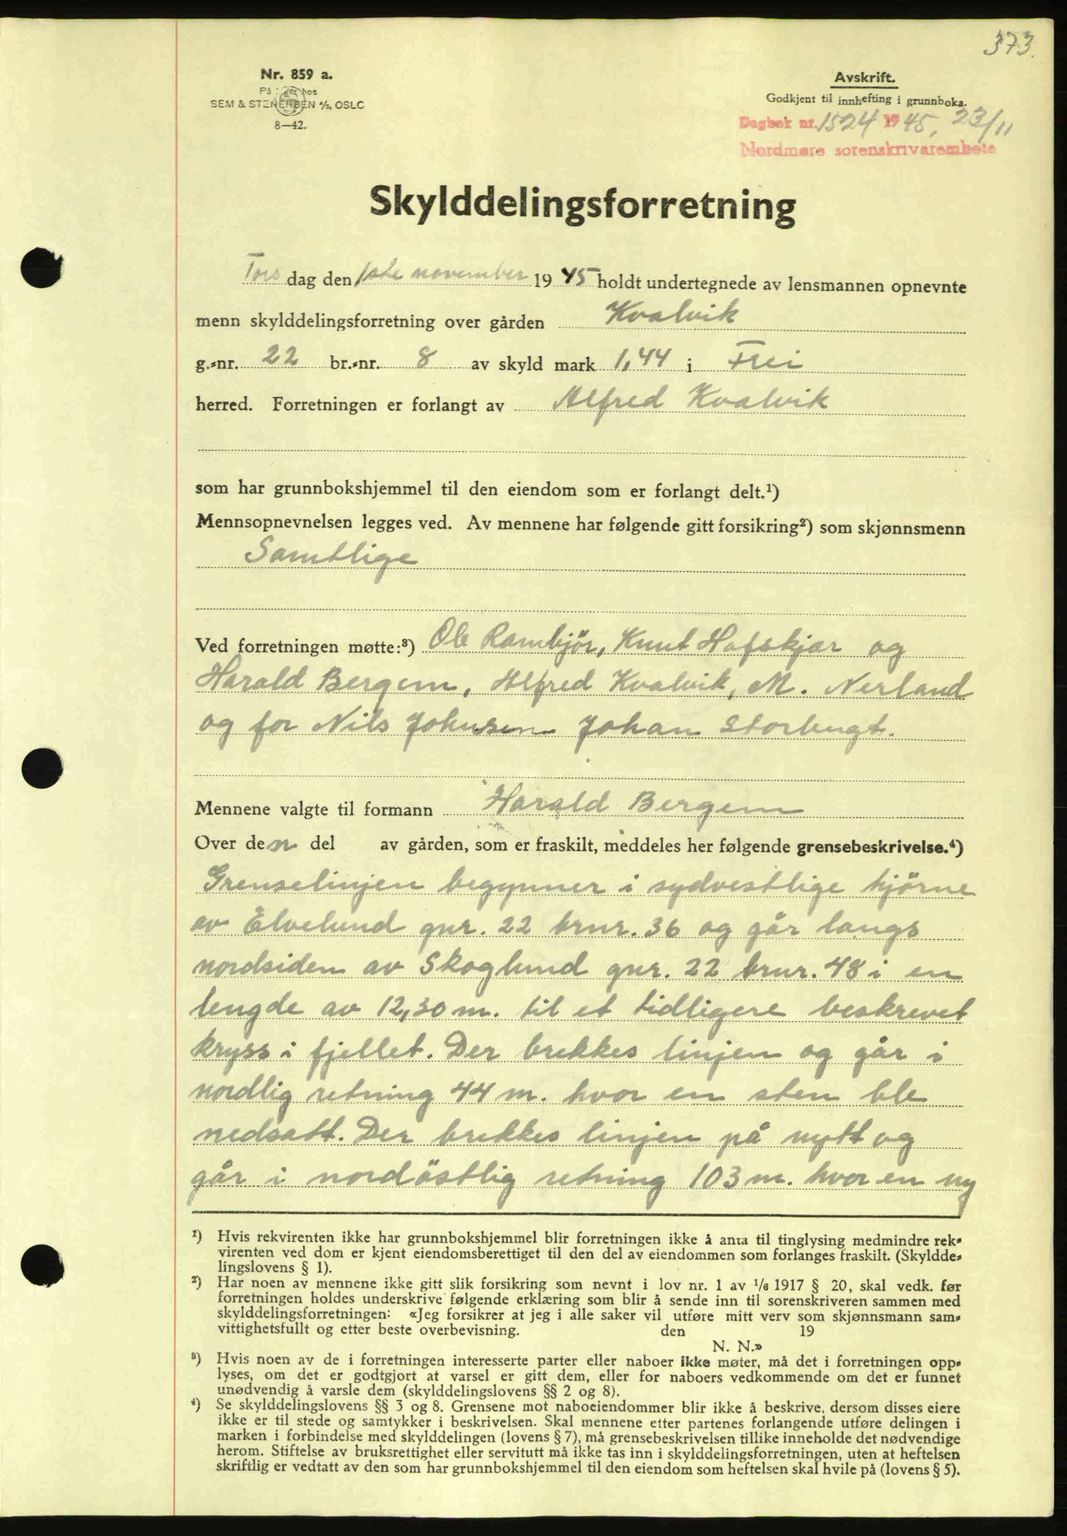 373.
Nr. 859 a.
På lager hos
SEM & STENERSEN A/S, OSLO
8—42.
Avskrift.
Godkjent til innhefting i grunnboka.
Dagbok nr. 1524 1945, 23/11
Nordmøre sorenskrivarembete
Skylddelingsforretning
Tors dag den 1ste november 1945 holdt undertegnede av lensmannen opnevnte
menn skylddelingsforretning over gården Kvalvik
g.-nr. 22 br.-nr. 8 av skyld mark 1,44 i Frei
herred. Forretningen er forlangt av Alfred Kvalvik
som har grunnbokshjemmel til den eiendom som er forlangt delt.¹)
Mennsopnevnelsen legges ved. Av mennene har følgende gitt forsikring²) som skjønnsmenn
Samtlige
Ved forretningen møtte:³) Ole Rambjør, Knut Hafskjær og
Harald Bergem, Alfred Kvalvik, M. Nerland
og for Nils Johnsen Johan Storbugt.
Mennene valgte til formann Harald Bergem
Over den del av gården, som er fraskilt, meddeles her følgende grensebeskrivelse.⁴)
Grenselinjen begynner i sydvestlige hjørne
av Elvelund gnr. 22 brnr. 36 og går langs
nordsiden av Skoglund gnr. 22 brnr. 48 i en
lengde av 12,30 m. til et tidligere beskrevet
kryss i fjellet. Der brekkes linjen og går i
nordlig retning 44 m. hvor en sten ble
nedsatt. Der brekkes linjen på nytt og
går i nordöstlig retning 103 m. hvor en ny
¹) Hvis rekvirenten ikke har grunnbokshjemmel blir forretningen ikke å anta til tinglysing medmindre rek-
virenten ved dom er kjent eiendomsberettiget til den del av eiendommen som forlanges fraskilt. (Skyldde-
lingslovens § 1).
²) Har noen av mennene ikke gitt slik forsikring som nevnt i lov nr. 1 av 1/6 1917 § 20, skal vedk. før
forretningen holdes underskrive følgende erklæring som blir å sende inn til sorenskriveren sammen med
skylddelingsforretningen: «Jeg forsikrer at jeg i alle saker vil utføre mitt verv som skjønnsmann sam-
vittighetsfullt og etter beste overbevisning. den 19
N. N.»
³) Hvis noen av de i forretningen interesserte parter eller naboer ikke møter, må det i forretningen opp-
lyses, om det er godtgjort at varsel er gitt dem, eller for naboers vedkommende om det er funnet
unødvendig å varsle dem (skylddelingslovens §§ 2 og 8).
⁴) Se skylddelingslovens §§ 3 og 8. Grensene mot naboeiendommer blir ikke å beskrive, dersom disses eiere
ikke er til stede og samtykker i beskrivelsen. Skal mennene etter partenes forlangende utføre delingen i
marken i forbindelse med skylddelingen (lovens § 7), må grensebeskrivelsen tillike inneholde det nødvendige
herom. Stiftelse av bruksrettighet eller servitutt må ikke tas inn i skylddelingsforretningen, uten at heftelsen
skriftlig er vedtatt av den som har grunnbokshjemmel til den eiendom som heftelsen skal hvile på (lovens § 5).